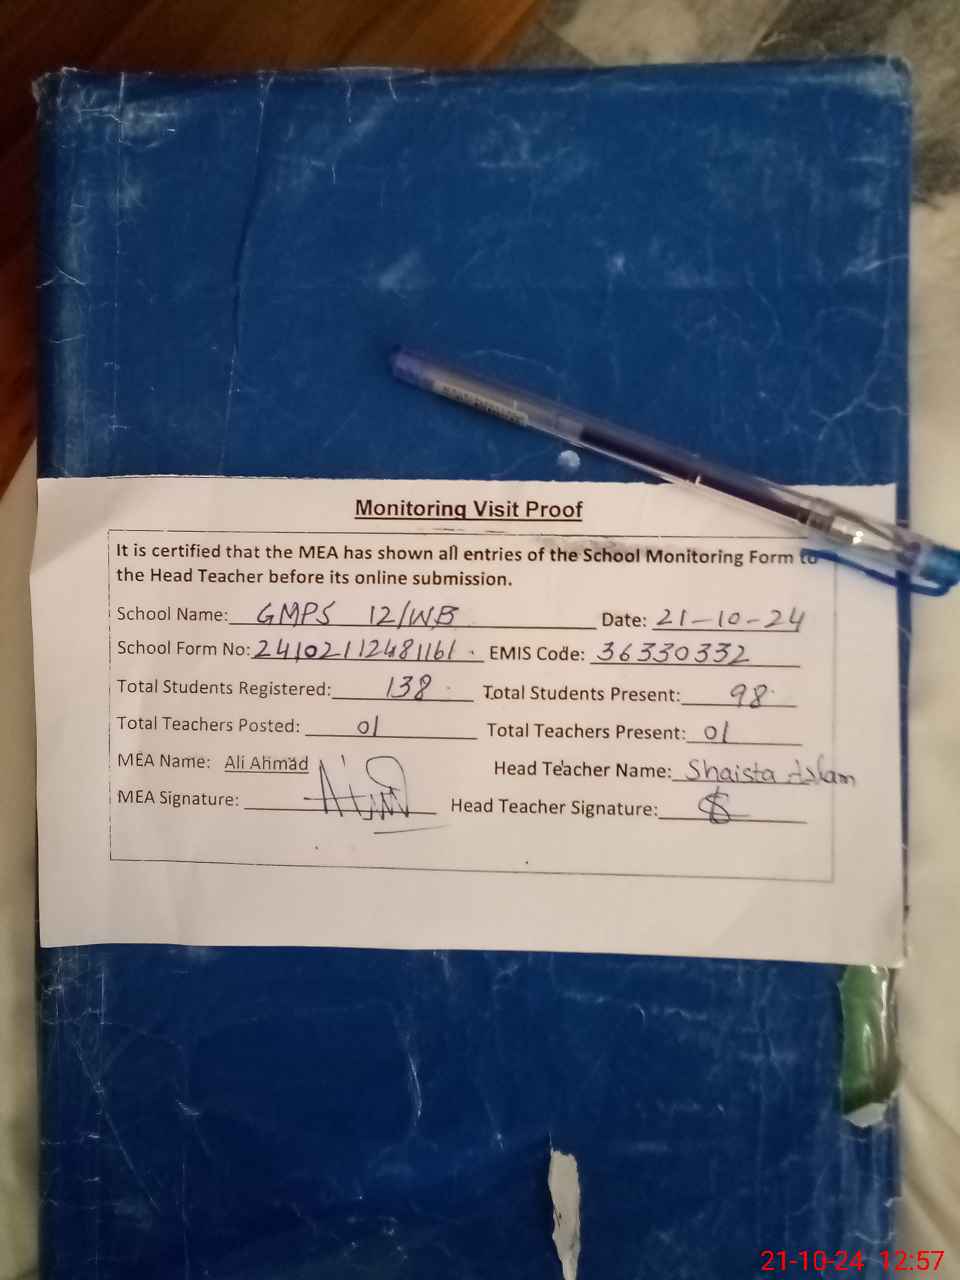 Monitoring Visit Proof
It is certified that the MEA has shown all entries of the School Monitoring Form to
the Head Teacher before its online submission.
School Name: GMPS 12/WB Date: 21-10-24
School Form No: 24102112481161 EMIS Code: 36330332
Total Students Registered: 138 Total Students Present: 98
Total Teachers Posted: 01 Total Teachers Present: 01
MEA Name: Ali Ahmad Head Teacher Name: Shaista Aslam
MEA Signature: Head Teacher Signature:
21-10-24 12:57